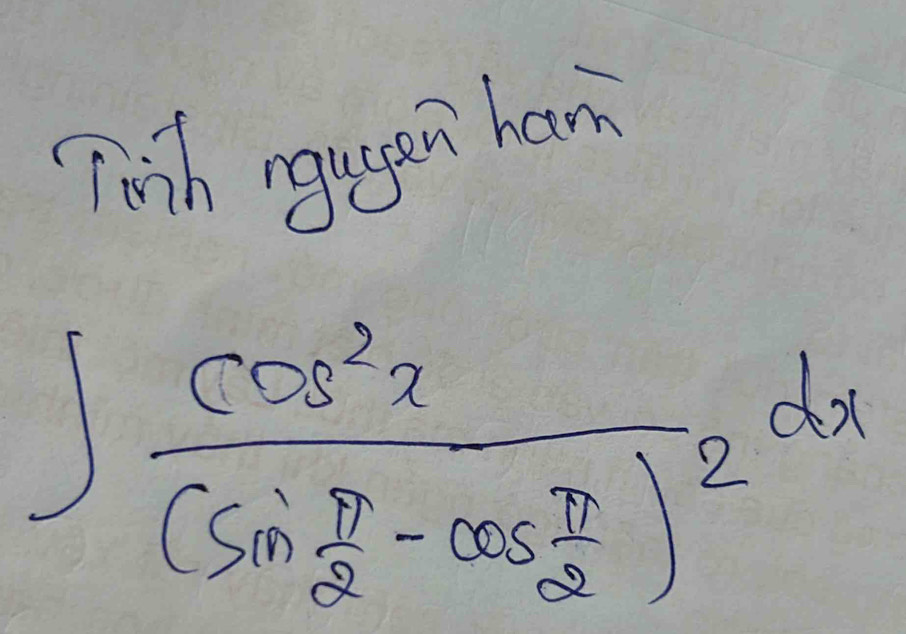 Tính nguyên hàm
∫ cos²x / (sin π/2 - cos π/2)² dx